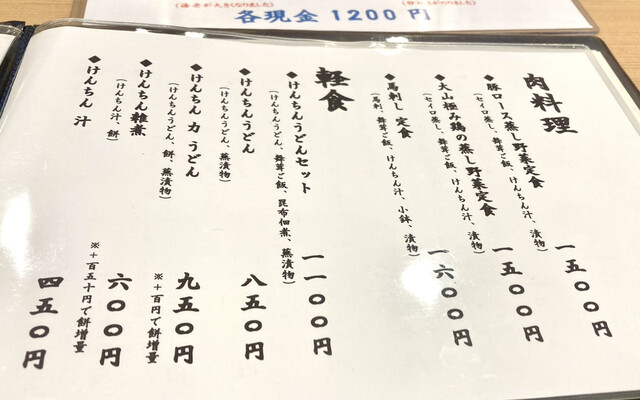 (海老が大きくなりました)
各現金 1200 円
肉料理
◆豚ロース蒸し野菜定食
(セイロ蒸し、舞茸ご飯、けんちん汁、漬物)
一五〇〇円
◆大山極み鶏の蒸し野菜定食
(セイロ蒸し、舞茸ご飯、けんちん汁、漬物)
一五〇〇円
◆馬刺し定食
(馬刺、舞茸ご飯、けんちん汁、小鉢、漬物)
一六〇〇円
軽食
◆けんちんうどんセット
(けんちんうどん、舞茸ご飯、昆布佃煮、蕪漬物)
一一〇〇円
◆けんちんうどん
(けんちんうどん、蕪漬物)
八五〇円
◆けんちん力うどん
(けんちんうどん、餅、蕪漬物)
九五〇円
※+百円で餅増量
◆けんちん雑煮
(けんちん汁、餅)
六〇〇円
※+百五十円で餅増量
◆けんちん汁
四五〇円